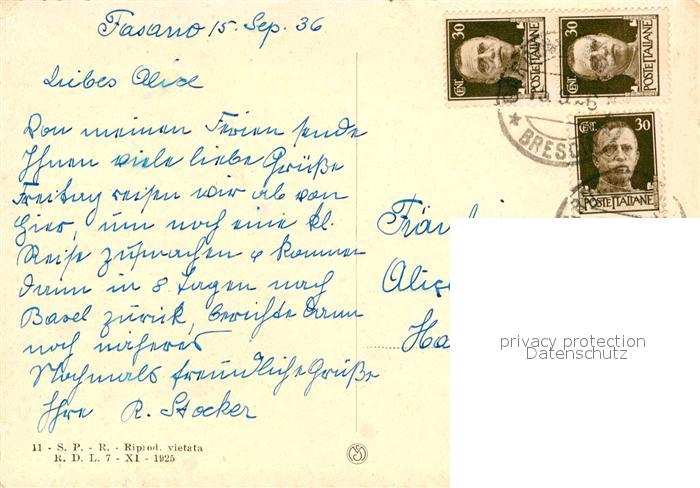 Fasano 15. Sep. 36
Liebes Alice
Von meinen Ferien sende
Ihnen viele liebe Grüße
Freitag reisen wir ab von
hier, um noch eine kl.
Reise zu machen & kommen
dann in 8 Tagen nach
Basel zurück, berichte dann
noch näheres
Nochmals freundliche Grüße
Ihre R. Stocker
11 - S. P. - R. - Riprod. vietata
R. D. L. 7 - XI - 1925
30
CENT.
POSTE ITALIANE
30
CENT.
POSTE ITALIANE
30
CENT.
POSTE ITALIANE
BRES
Fräu
Alic
Ha
privacy protection
Datenschutz